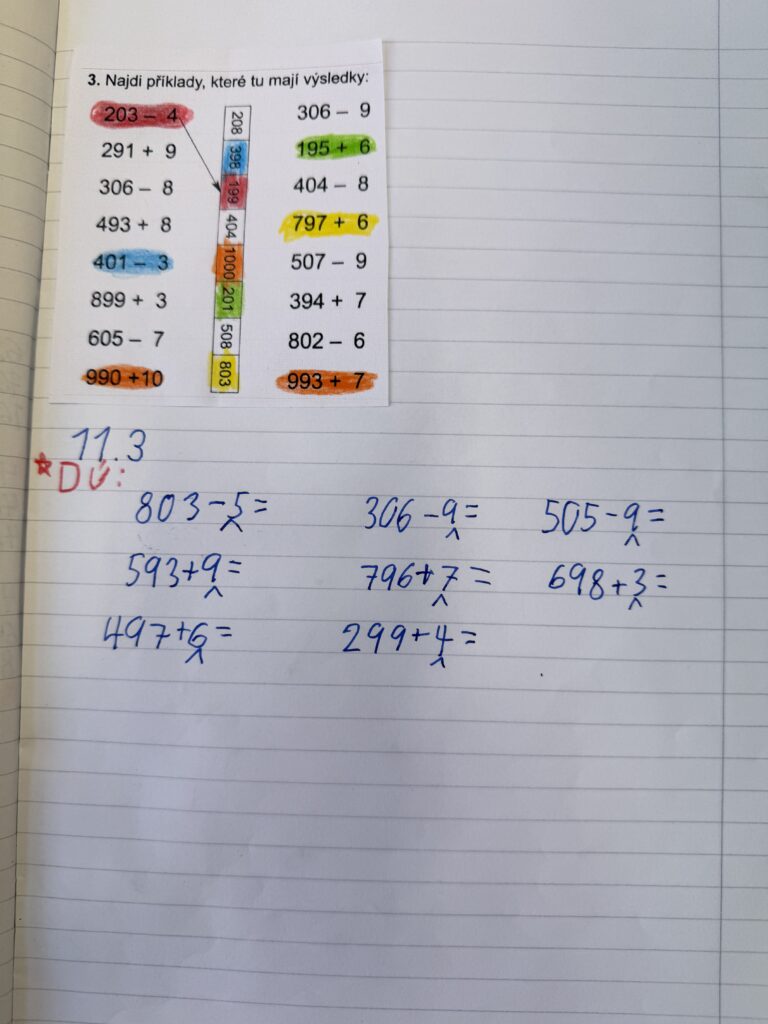 3. Najdi příklady, které tu mají výsledky:
203 – 4
291 + 9
306 – 8
493 + 8
401 – 3
899 + 3
605 – 7
990 +10
208
398
199
404
1000
201
508
803
306 – 9
195 + 6
404 – 8
797 + 6
507 – 9
394 + 7
802 – 6
993 + 7
11.3
* DÚ:
803-5= 306-9= 505-9=
593+9= 796+7= 698+3=
497+6= 299+4=